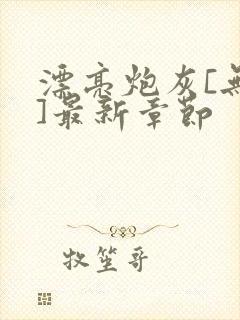 漂亮炮灰[無
]最新章節
牧笙哥